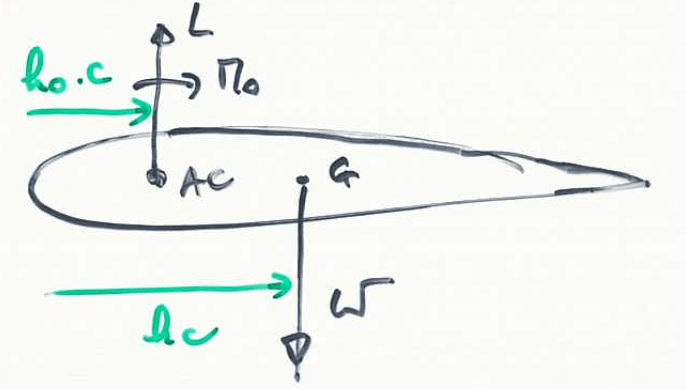 L
h₀.c
M₀
AC
G
W
hc